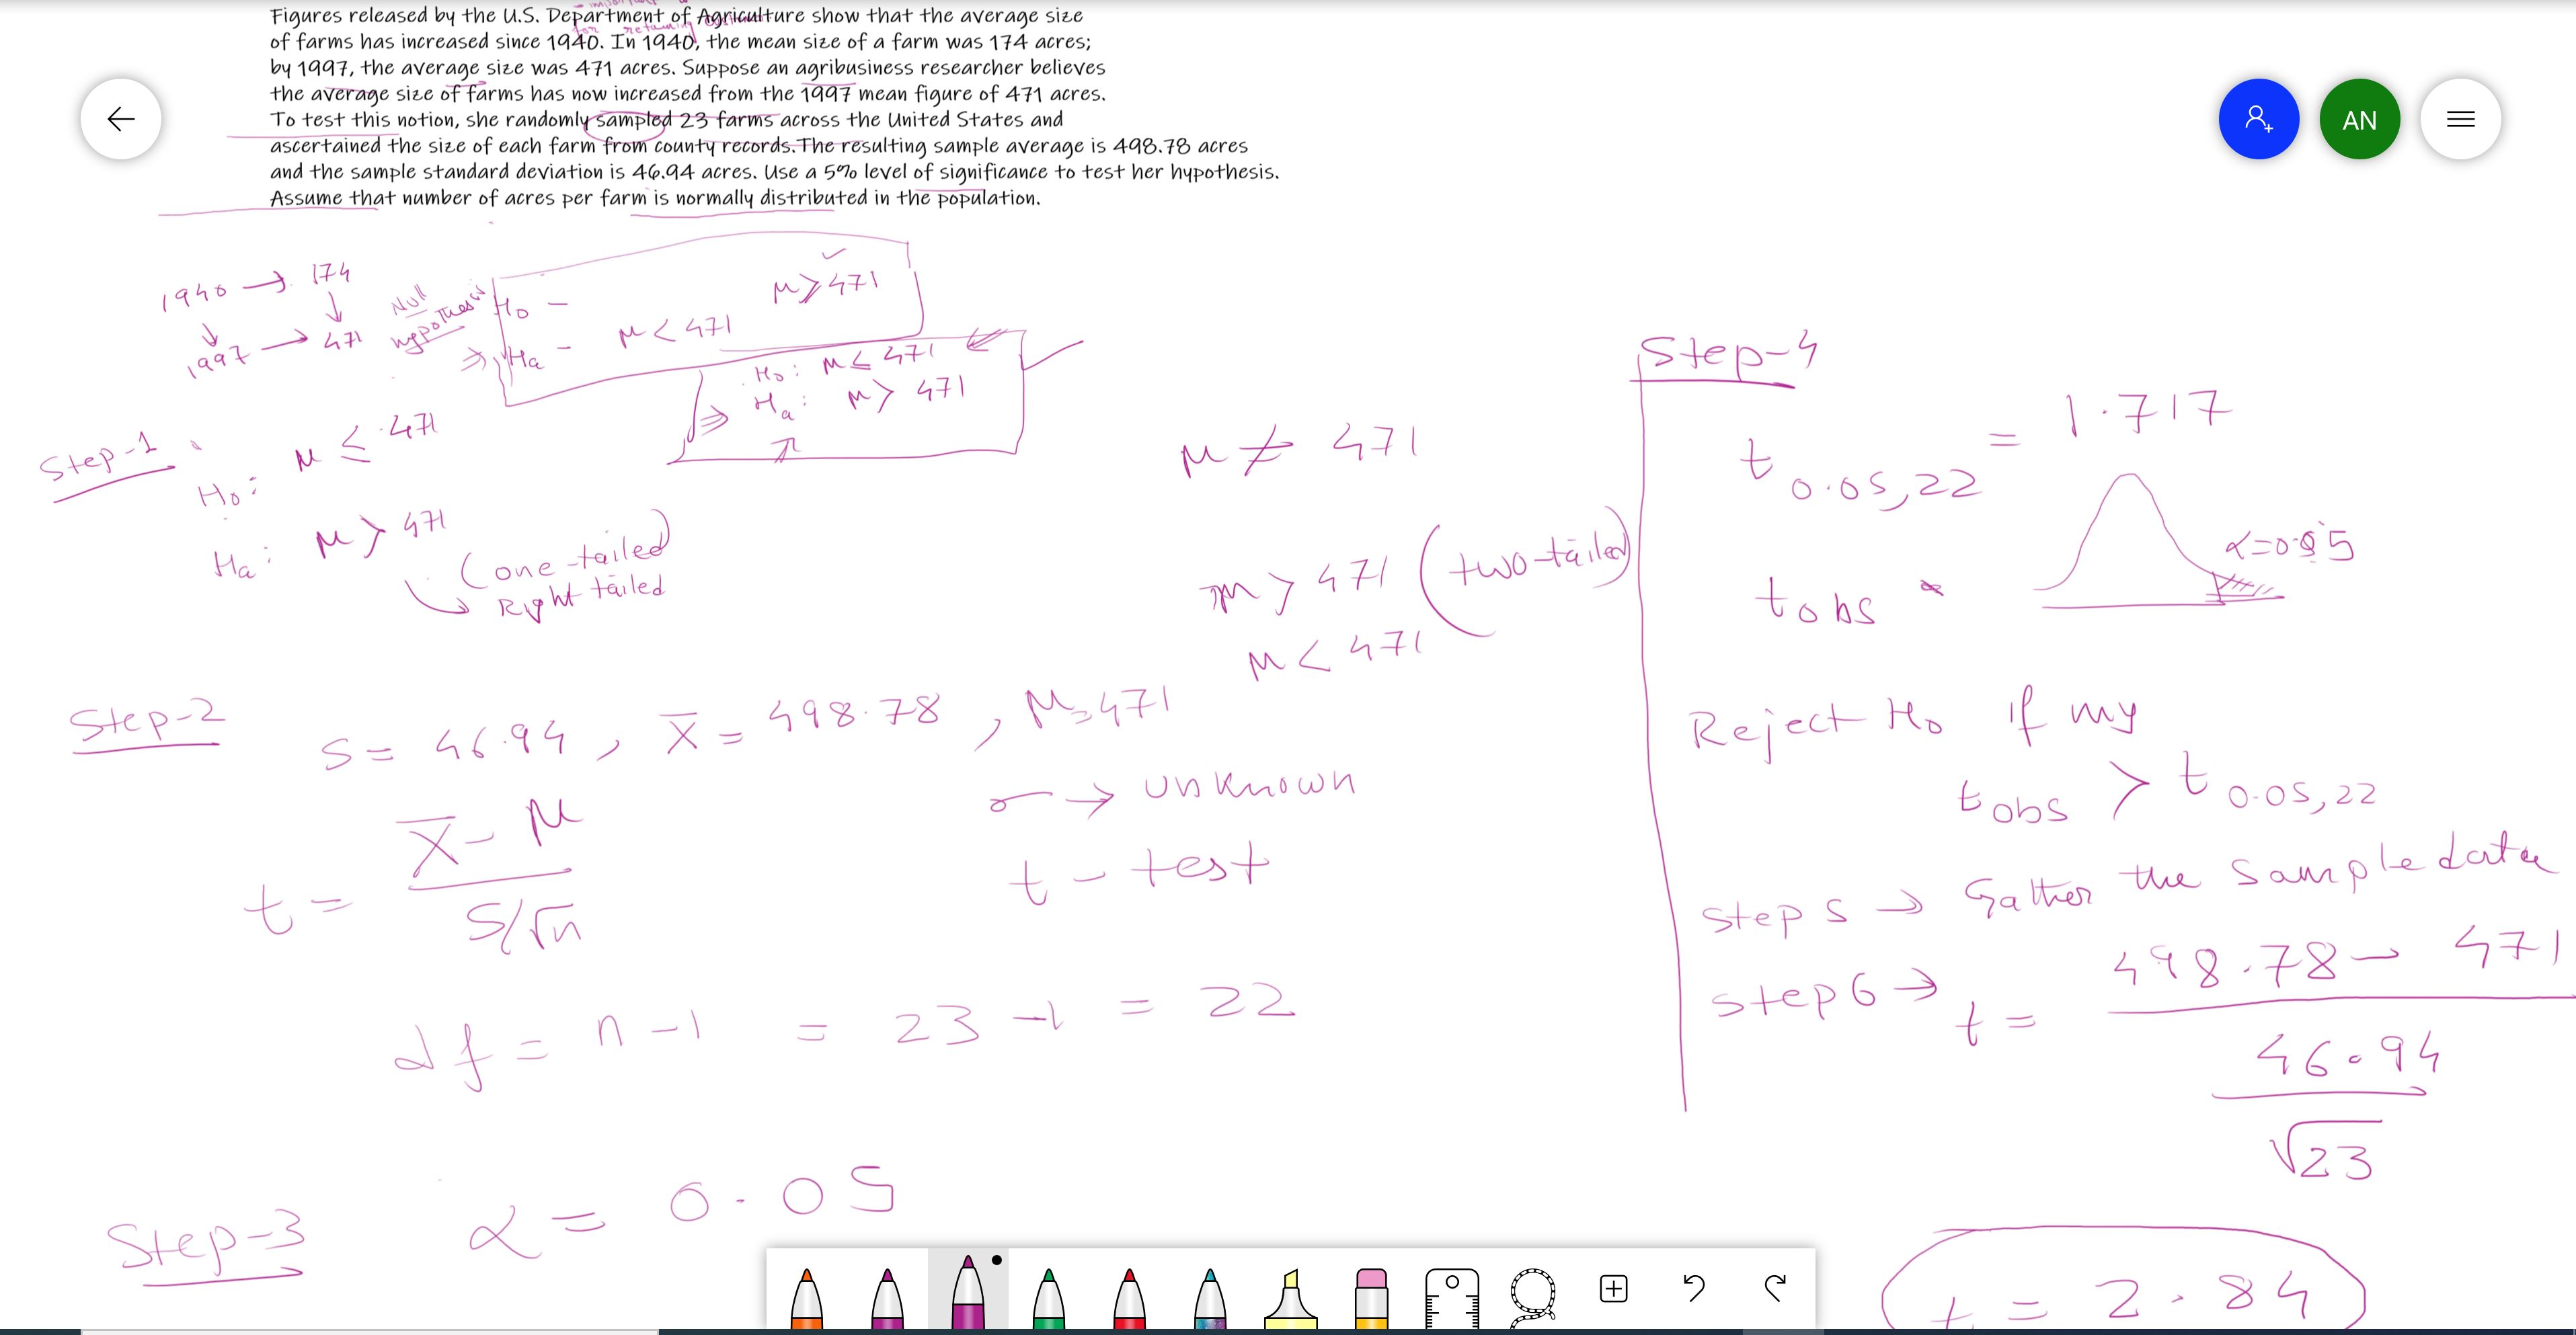 Figures released by the U.S. Department of Agriculture show that the average size
of farms has increased since 1940. In 1940, the mean size of a farm was 174 acres;
by 1997, the average size was 471 acres. Suppose an agribusiness researcher believes
the average size of farms has now increased from the 1997 mean figure of 471 acres.
To test this notion, she randomly sampled 23 farms across the United States and
ascertained the size of each farm from county records. The resulting sample average is 498.78 acres
and the sample standard deviation is 46.94 acres. Use a 5% level of significance to test her hypothesis.
Assume that number of acres per farm is normally distributed in the population.
for retaining
AN
1940 → 174
↓ ↓
1997 → 471
Null
hypothesis
H₀ – μ ⩾ 471
⇒ Ha – μ < 471
⇒ H₀: μ ≤ 471
Ha: μ > 471
Step-1
H₀: μ ≤ 471
Ha: μ > 471
(one-tailed)
Right tailed
μ ≠ 471
μ > 471 (two-tailed)
μ < 471
Step-2
S = 46.94, x̄ = 498.78, μ = 471
σ → unknown
t = (x̄ - μ) / (S/√n)
t – test
df = n – 1 = 23 – 1 = 22
Step-3
α = 0.05
Step-4
t 0.05,22 = 1.717
α=0.05
t obs
Reject H₀ if my
t obs > t 0.05,22
Step 5 → Gather the sample data
Step 6 → t = 498.78 – 471
46.94
√23
t = 2.84